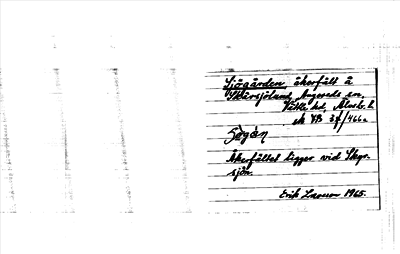 Sjögården åkerfält å
Skårsjölund, Angereds sn.
Vättle hd, Älvsb. l.
ek YB 3f/466a
Sögån
Åkerfältet ligger vid Skyr-
sjön.
Erik Larsson 1965.